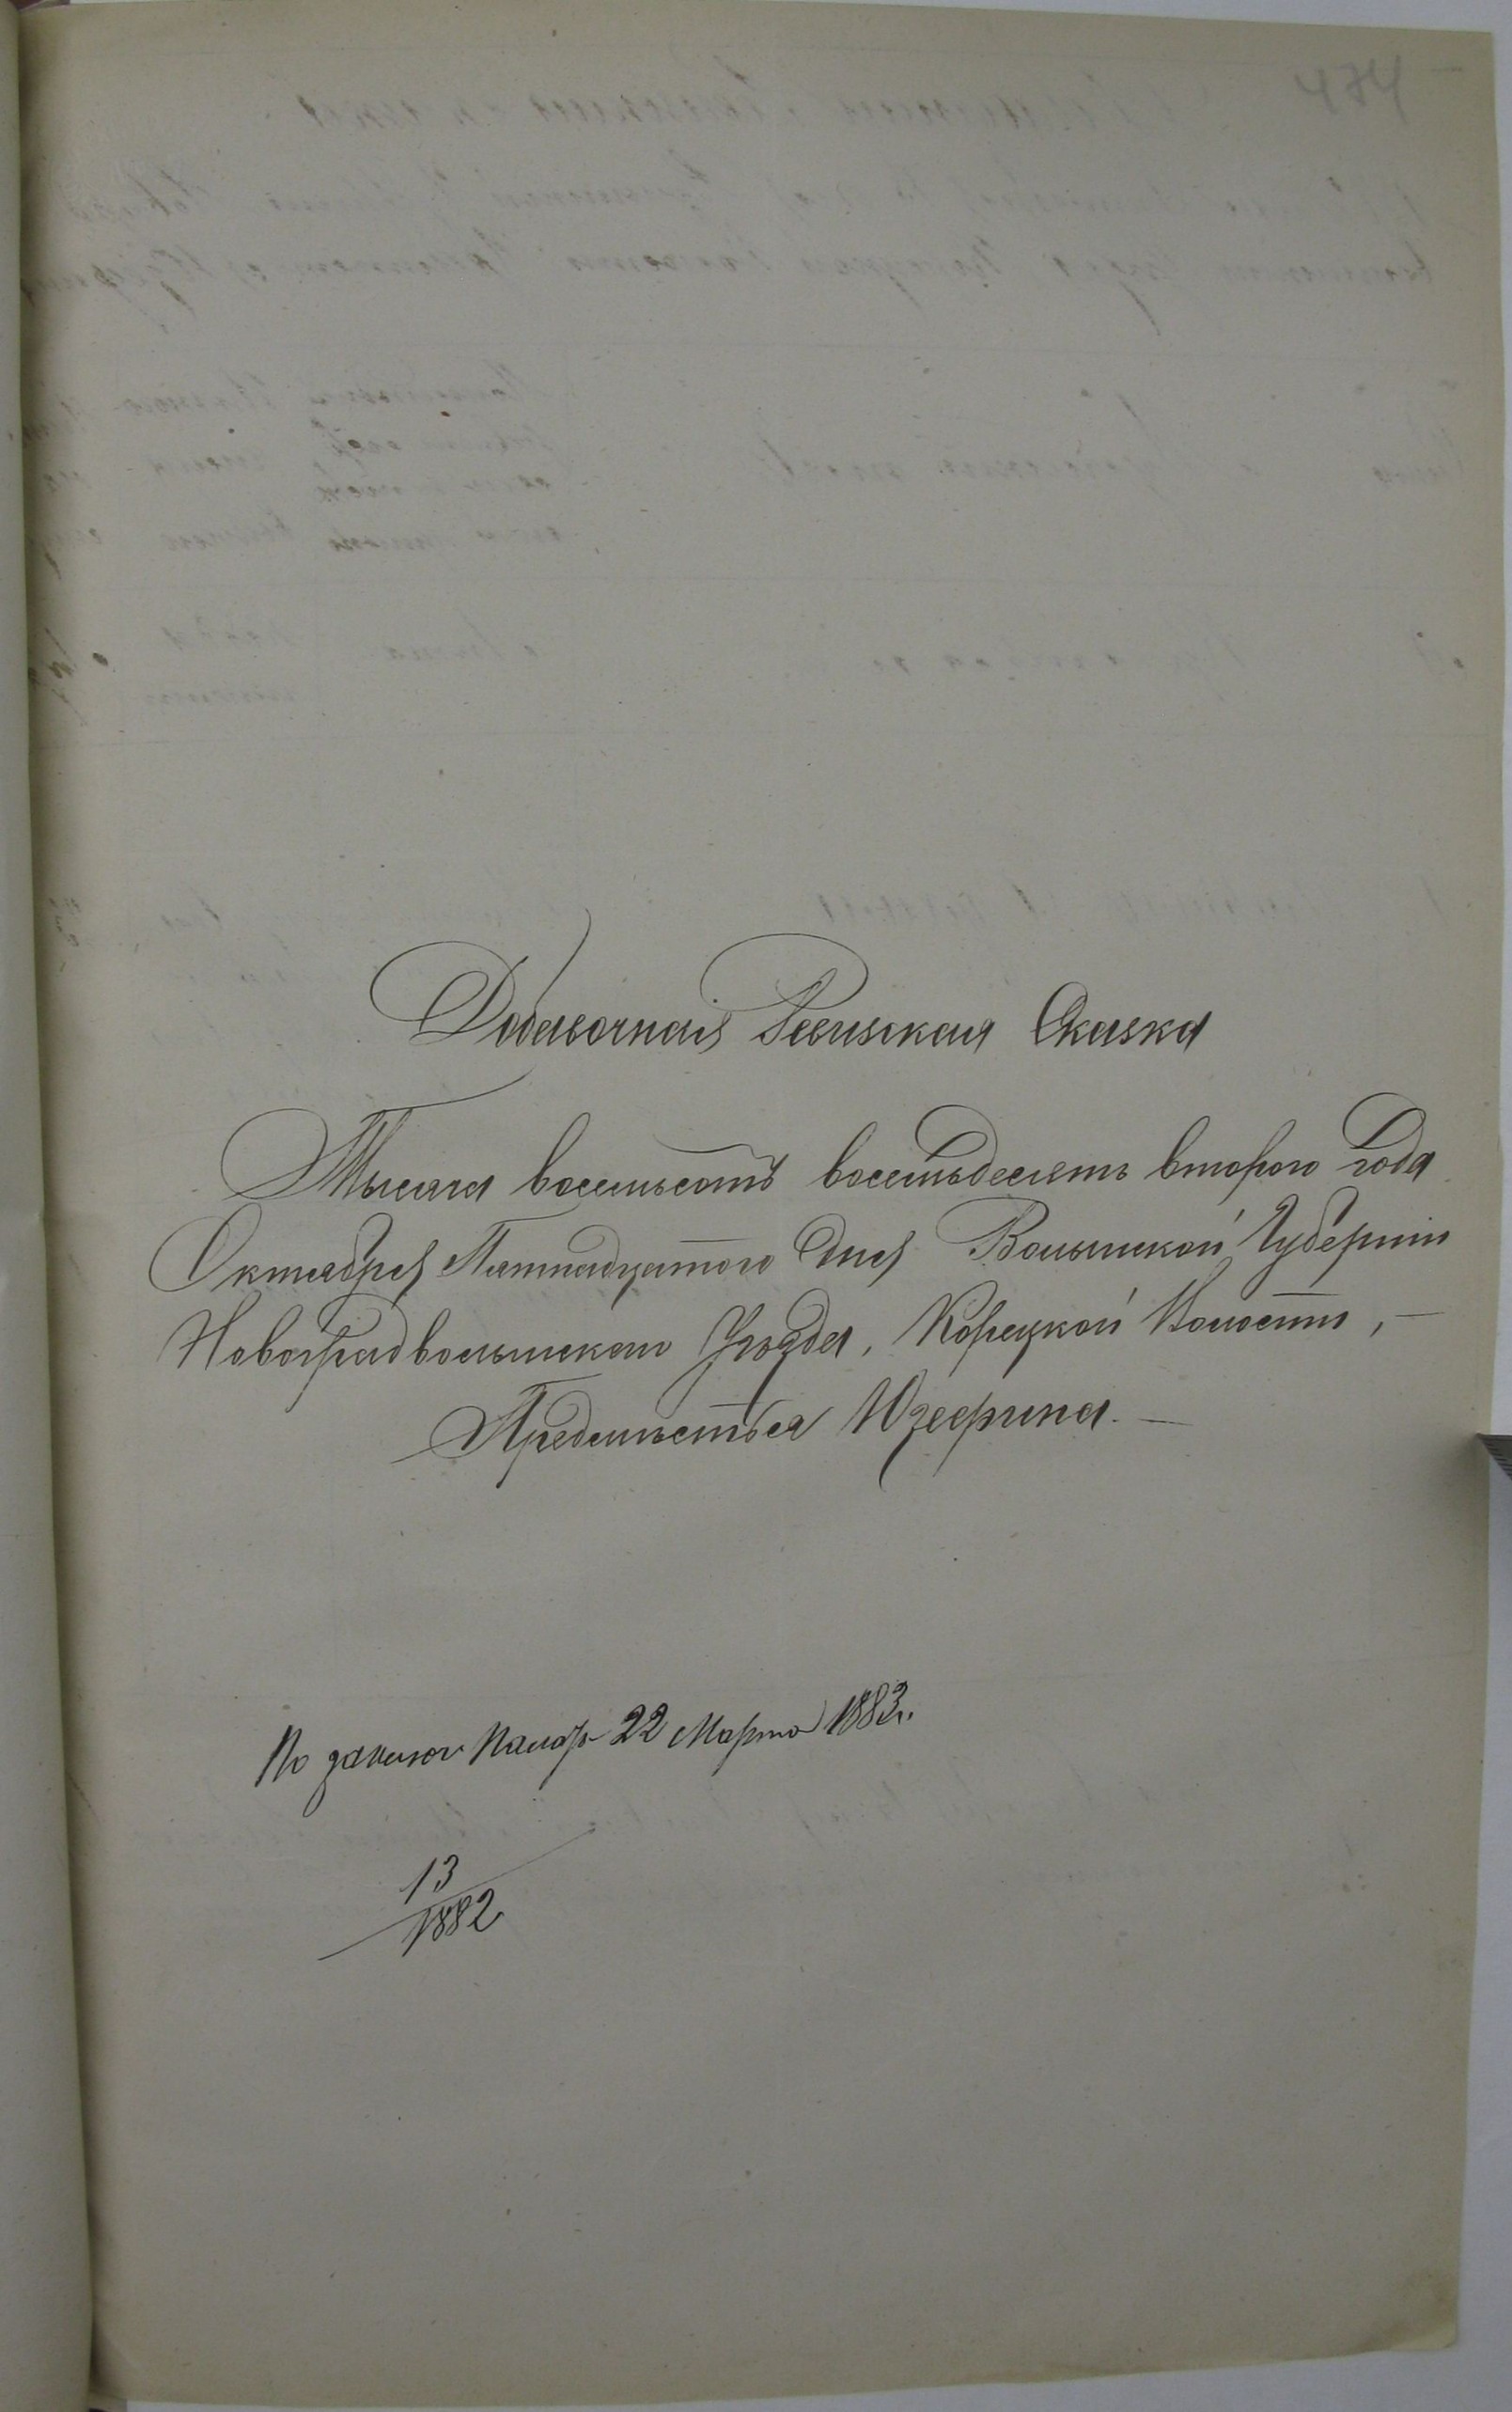 474
Добавочная Ревизская Сказка
Тысяча восемьсотъ восемьдесятъ втораго года
Октября Пятнадцатого дня Волынской Губерніи
Новоградволынскаго Уѣзда, Корецкой Волости, —
Предмѣстья Юзефина. —
По 22 Марта 1883 г.
13
1882